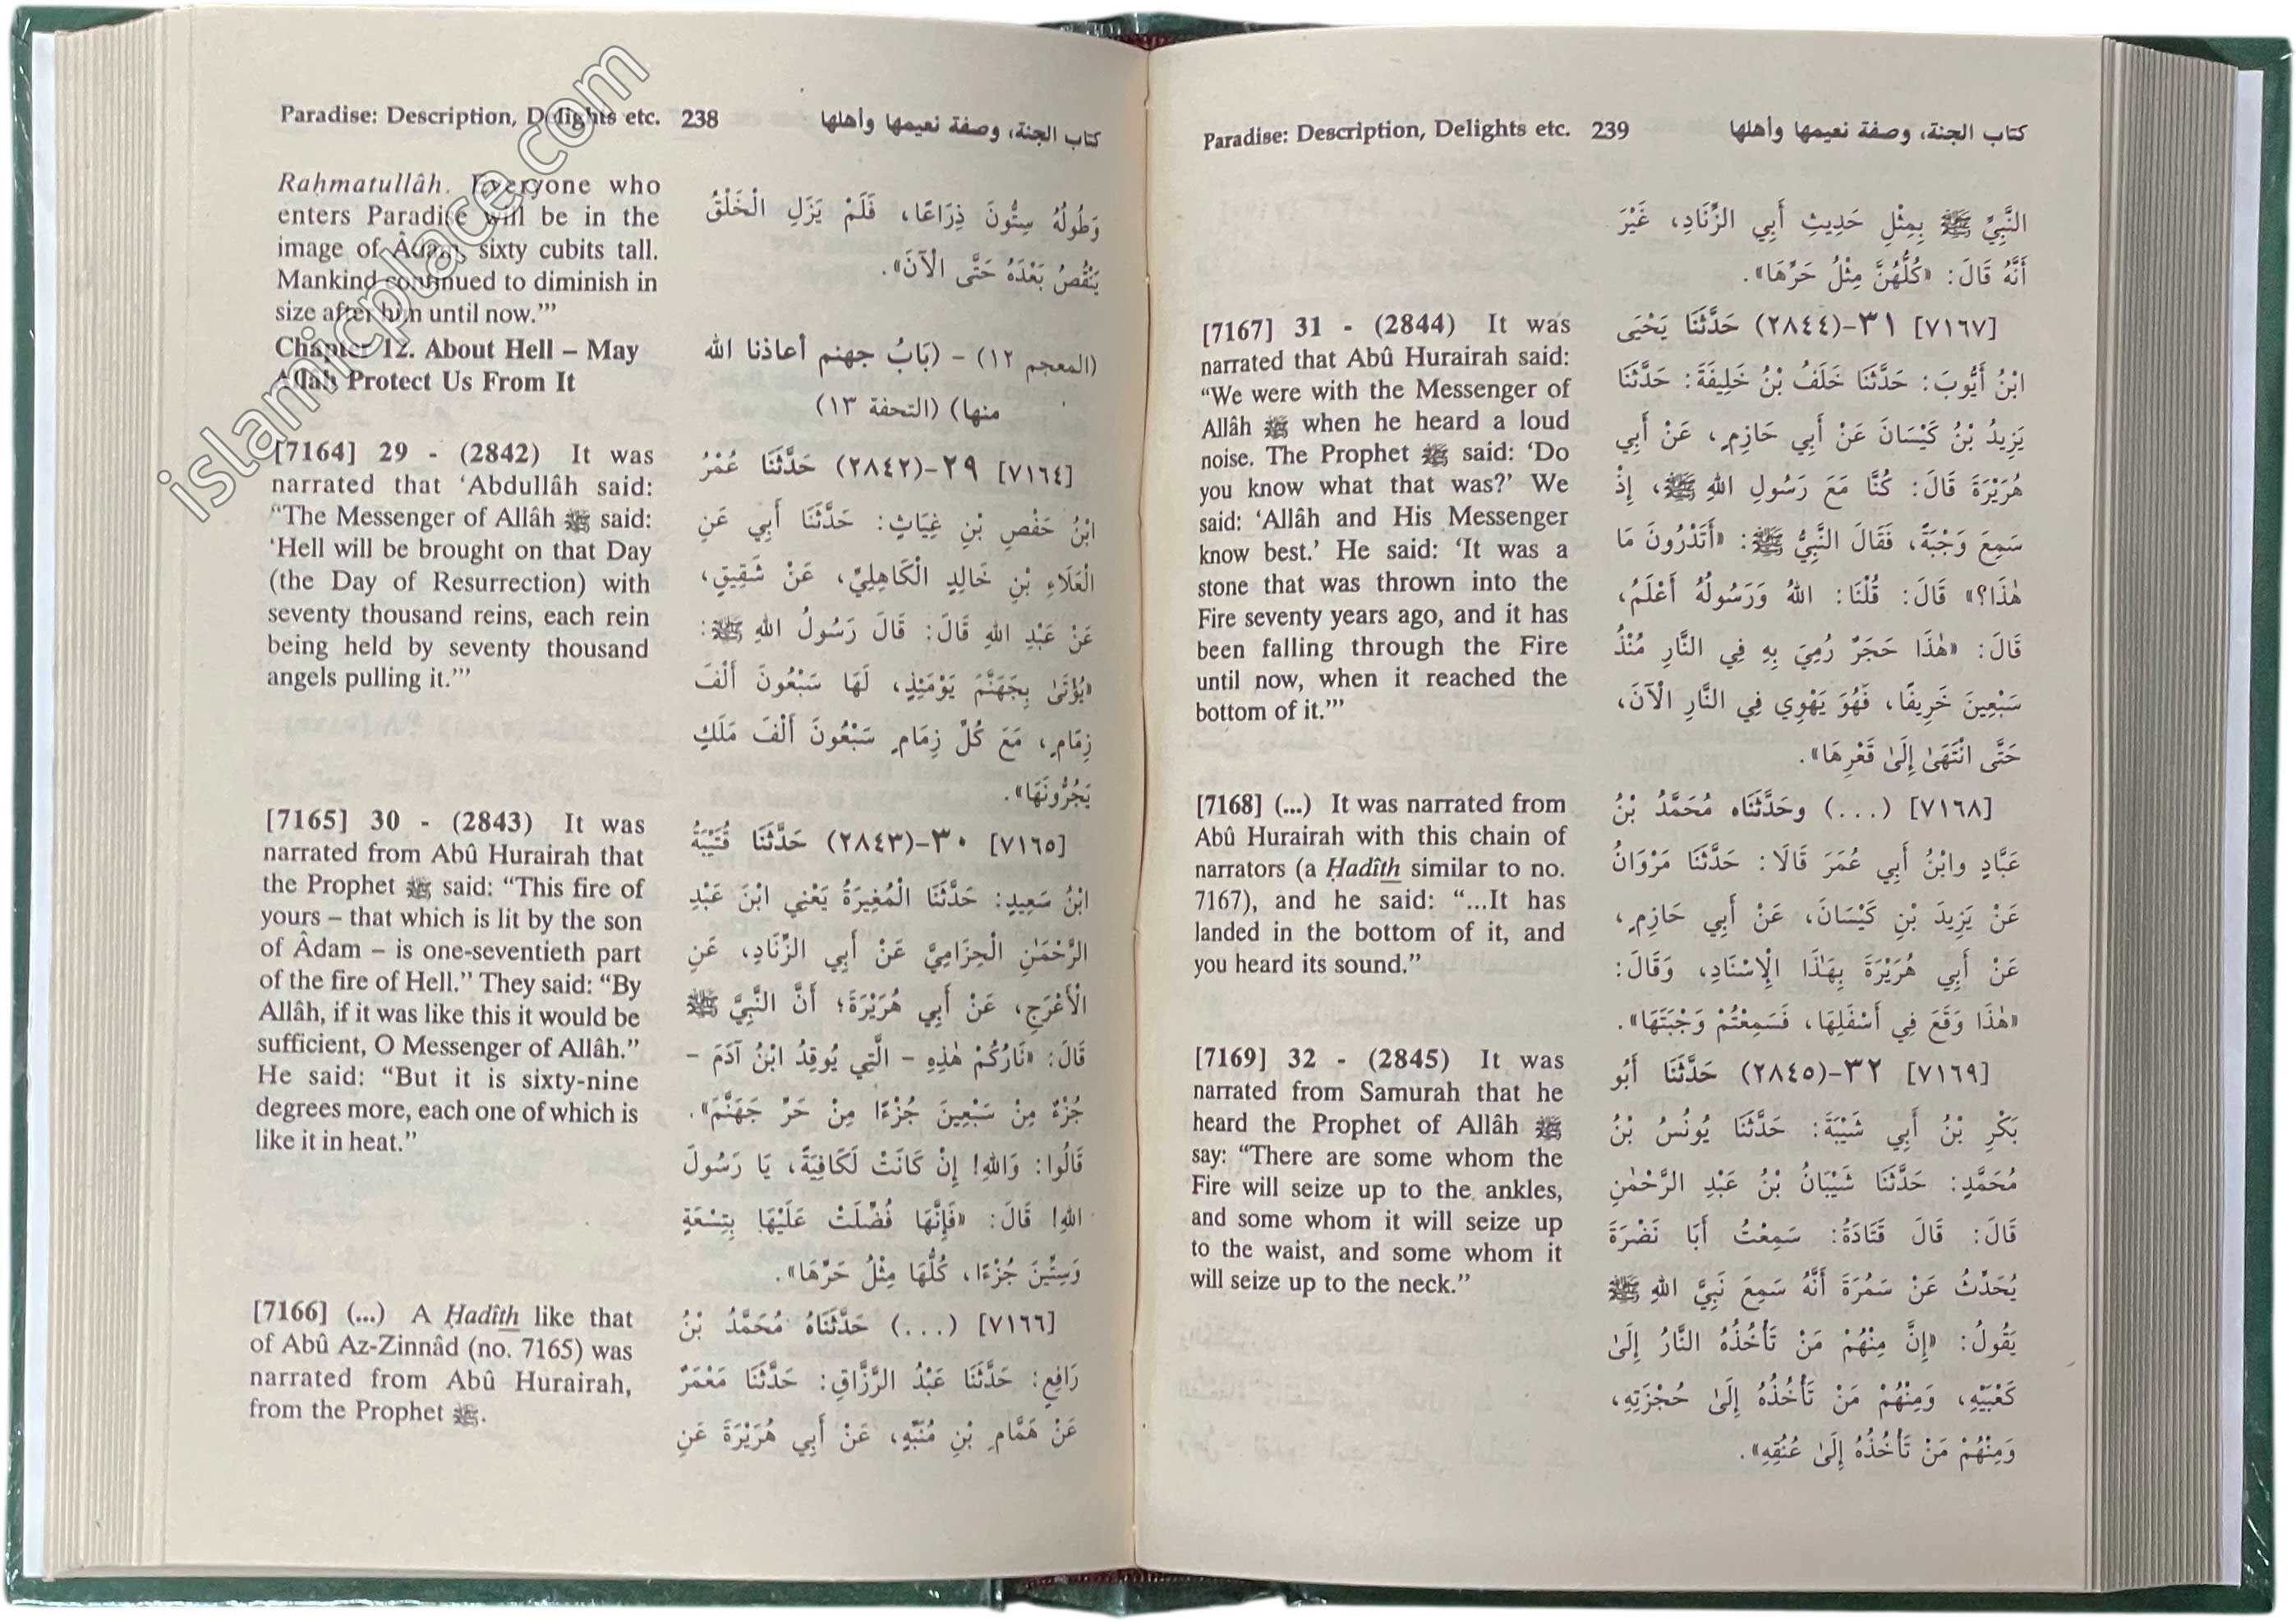 Paradise: Description, Delights etc. 238 كتاب الجنة، وصفة نعيمها وأهلها
Raḥmatullâh. Everyone who
enters Paradise will be in the
image of Âdam, sixty cubits tall.
Mankind continued to diminish in
size after him until now.’”
Chapter 12. About Hell – May
Allâh Protect Us From It
[7164] 29 - (2842) It was
narrated that ‘Abdullâh said:
“The Messenger of Allâh ﷺ said:
‘Hell will be brought on that Day
(the Day of Resurrection) with
seventy thousand reins, each rein
being held by seventy thousand
angels pulling it.’”
[7165] 30 - (2843) It was
narrated from Abû Hurairah that
the Prophet ﷺ said: “This fire of
yours – that which is lit by the son
of Âdam – is one-seventieth part
of the fire of Hell.” They said: “By
Allâh, if it was like this it would be
sufficient, O Messenger of Allâh.”
He said: “But it is sixty-nine
degrees more, each one of which is
like it in heat.”
[7166] (...) A Ḥadîth like that
of Abû Az-Zinnâd (no. 7165) was
narrated from Abû Hurairah,
from the Prophet ﷺ.
وَطُولُهُ سِتُّونَ ذِرَاعًا، فَلَمْ يَزَلِ الْخَلْقُ
يَنْقُصُ بَعْدَهُ حَتَّى الْآنَ».
(المعجم ١٢) - (بَابُ جهنم أعاذنا الله
منها) (التحفة ١٣)
[٧١٦٤] ٢٩-(٢٨٤٢) حَدَّثَنَا عُمْرُ
ابْنُ حَفْصِ بْنِ غِيَاثٍ: حَدَّثَنَا أَبِي عَنِ
الْعَلَاءِ بْنِ خَالِدٍ الْكَاهِلِيِّ، عَنْ شَقِيقٍ،
عَنْ عَبْدِ اللهِ قَالَ: قَالَ رَسُولُ اللهِ ﷺ:
«يُؤْتَىٰ بِجَهَنَّمَ يَوْمَئِذٍ، لَهَا سَبْعُونَ أَلْفَ
زِمَامٍ، مَعَ كُلِّ زِمَامٍ سَبْعُونَ أَلْفَ مَلَكٍ
يَجُرُّونَهَا».
[٧١٦٥] ٣٠-(٢٨٤٣) حَدَّثَنَا قُتَيْبَةُ
ابْنُ سَعِيدٍ: حَدَّثَنَا الْمُغِيرَةُ يَعْنِي ابْنَ عَبْدِ
الرَّحْمَٰنِ الْحِزَامِيَّ عَنْ أَبِي الزِّنَادِ، عَنِ
الْأَعْرَجِ، عَنْ أَبِي هُرَيْرَةَ؛ أَنَّ النَّبِيَّ ﷺ
قَالَ: «نَارُكُمْ هٰذِهِ - الَّتِي يُوقِدُ ابْنُ آدَمَ -
جُزْءٌ مِنْ سَبْعِينَ جُزْءًا مِنْ حَرِّ جَهَنَّمَ».
قَالُوا: وَاللهِ! إِنْ كَانَتْ لَكَافِيَةً، يَا رَسُولَ
اللهِ! قَالَ: «فَإِنَّهَا فُضِّلَتْ عَلَيْهَا بِتِسْعَةٍ
وَسِتِّينَ جُزْءًا، كُلُّهَا مِثْلُ حَرِّهَا».
[٧١٦٦] (...) حَدَّثَنَاهُ مُحَمَّدُ بْنُ
رَافِعٍ: حَدَّثَنَا عَبْدُ الرَّزَّاقِ: حَدَّثَنَا مَعْمَرٌ
عَنْ هَمَّامِ بْنِ مُنَبِّهٍ، عَنْ أَبِي هُرَيْرَةَ عَنِ
Paradise: Description, Delights etc. 239 كتاب الجنة، وصفة نعيمها وأهلها
[7167] 31 - (2844) It was
narrated that Abû Hurairah said:
“We were with the Messenger of
Allâh ﷺ when he heard a loud
noise. The Prophet ﷺ said: ‘Do
you know what that was?’ We
said: ‘Allâh and His Messenger
know best.’ He said: ‘It was a
stone that was thrown into the
Fire seventy years ago, and it has
been falling through the Fire
until now, when it reached the
bottom of it.’”
[7168] (...) It was narrated from
Abû Hurairah with this chain of
narrators (a Ḥadîth similar to no.
7167), and he said: “...It has
landed in the bottom of it, and
you heard its sound.”
[7169] 32 - (2845) It was
narrated from Samurah that he
heard the Prophet of Allâh ﷺ
say: “There are some whom the
Fire will seize up to the ankles,
and some whom it will seize up
to the waist, and some whom it
will seize up to the neck.”
النَّبِيِّ ﷺ بِمِثْلِ حَدِيثِ أَبِي الزِّنَادِ، غَيْرَ
أَنَّهُ قَالَ: «كُلُّهُنَّ مِثْلُ حَرِّهَا».
[٧١٦٧] ٣١-(٢٨٤٤) حَدَّثَنَا يَحْيَى
ابْنُ أَيُّوبَ: حَدَّثَنَا خَلَفُ بْنُ خَلِيفَةَ: حَدَّثَنَا
يَزِيدُ بْنُ كَيْسَانَ عَنْ أَبِي حَازِمٍ، عَنْ أَبِي
هُرَيْرَةَ قَالَ: كُنَّا مَعَ رَسُولِ اللهِ ﷺ، إِذْ
سَمِعَ وَجْبَةً، فَقَالَ النَّبِيُّ ﷺ: «أَتَدْرُونَ مَا
هٰذَا؟» قَالَ: قُلْنَا: اللهُ وَرَسُولُهُ أَعْلَمُ،
قَالَ: «هٰذَا حَجَرٌ رُمِيَ بِهِ فِي النَّارِ مُنْذُ
سَبْعِينَ خَرِيفًا، فَهُوَ يَهْوِي فِي النَّارِ الْآنَ،
حَتَّى انْتَهَىٰ إِلَىٰ قَعْرِهَا».
[٧١٦٨] (...) وحَدَّثَنَاه مُحَمَّدُ بْنُ
عَبَّادٍ وابْنُ أَبِي عُمَرَ قَالَا: حَدَّثَنَا مَرْوَانُ
عَنْ يَزِيدَ بْنِ كَيْسَانَ، عَنْ أَبِي حَازِمٍ،
عَنْ أَبِي هُرَيْرَةَ بِهَٰذَا الْإِسْنَادِ، وَقَالَ:
«هٰذَا وَقَعَ فِي أَسْفَلِهَا، فَسَمِعْتُمْ وَجْبَتَهَا».
[٧١٦٩] ٣٢-(٢٨٤٥) حَدَّثَنَا أَبُو
بَكْرِ بْنُ أَبِي شَيْبَةَ: حَدَّثَنَا يُونُسُ بْنُ
مُحَمَّدٍ: حَدَّثَنَا شَيْبَانُ بْنُ عَبْدِ الرَّحْمٰنِ
قَالَ: قَالَ قَتَادَةُ: سَمِعْتُ أَبَا نَضْرَةَ
يُحَدِّثُ عَنْ سَمُرَةَ أَنَّهُ سَمِعَ نَبِيَّ اللهِ ﷺ
يَقُولُ: «إِنَّ مِنْهُمْ مَنْ تَأْخُذُهُ النَّارُ إِلَىٰ
كَعْبَيْهِ، وَمِنْهُمْ مَنْ تَأْخُذُهُ إِلَىٰ حُجْزَتِهِ،
وَمِنْهُمْ مَنْ تَأْخُذُهُ إِلَىٰ عُنُقِهِ».
islamicplace.com